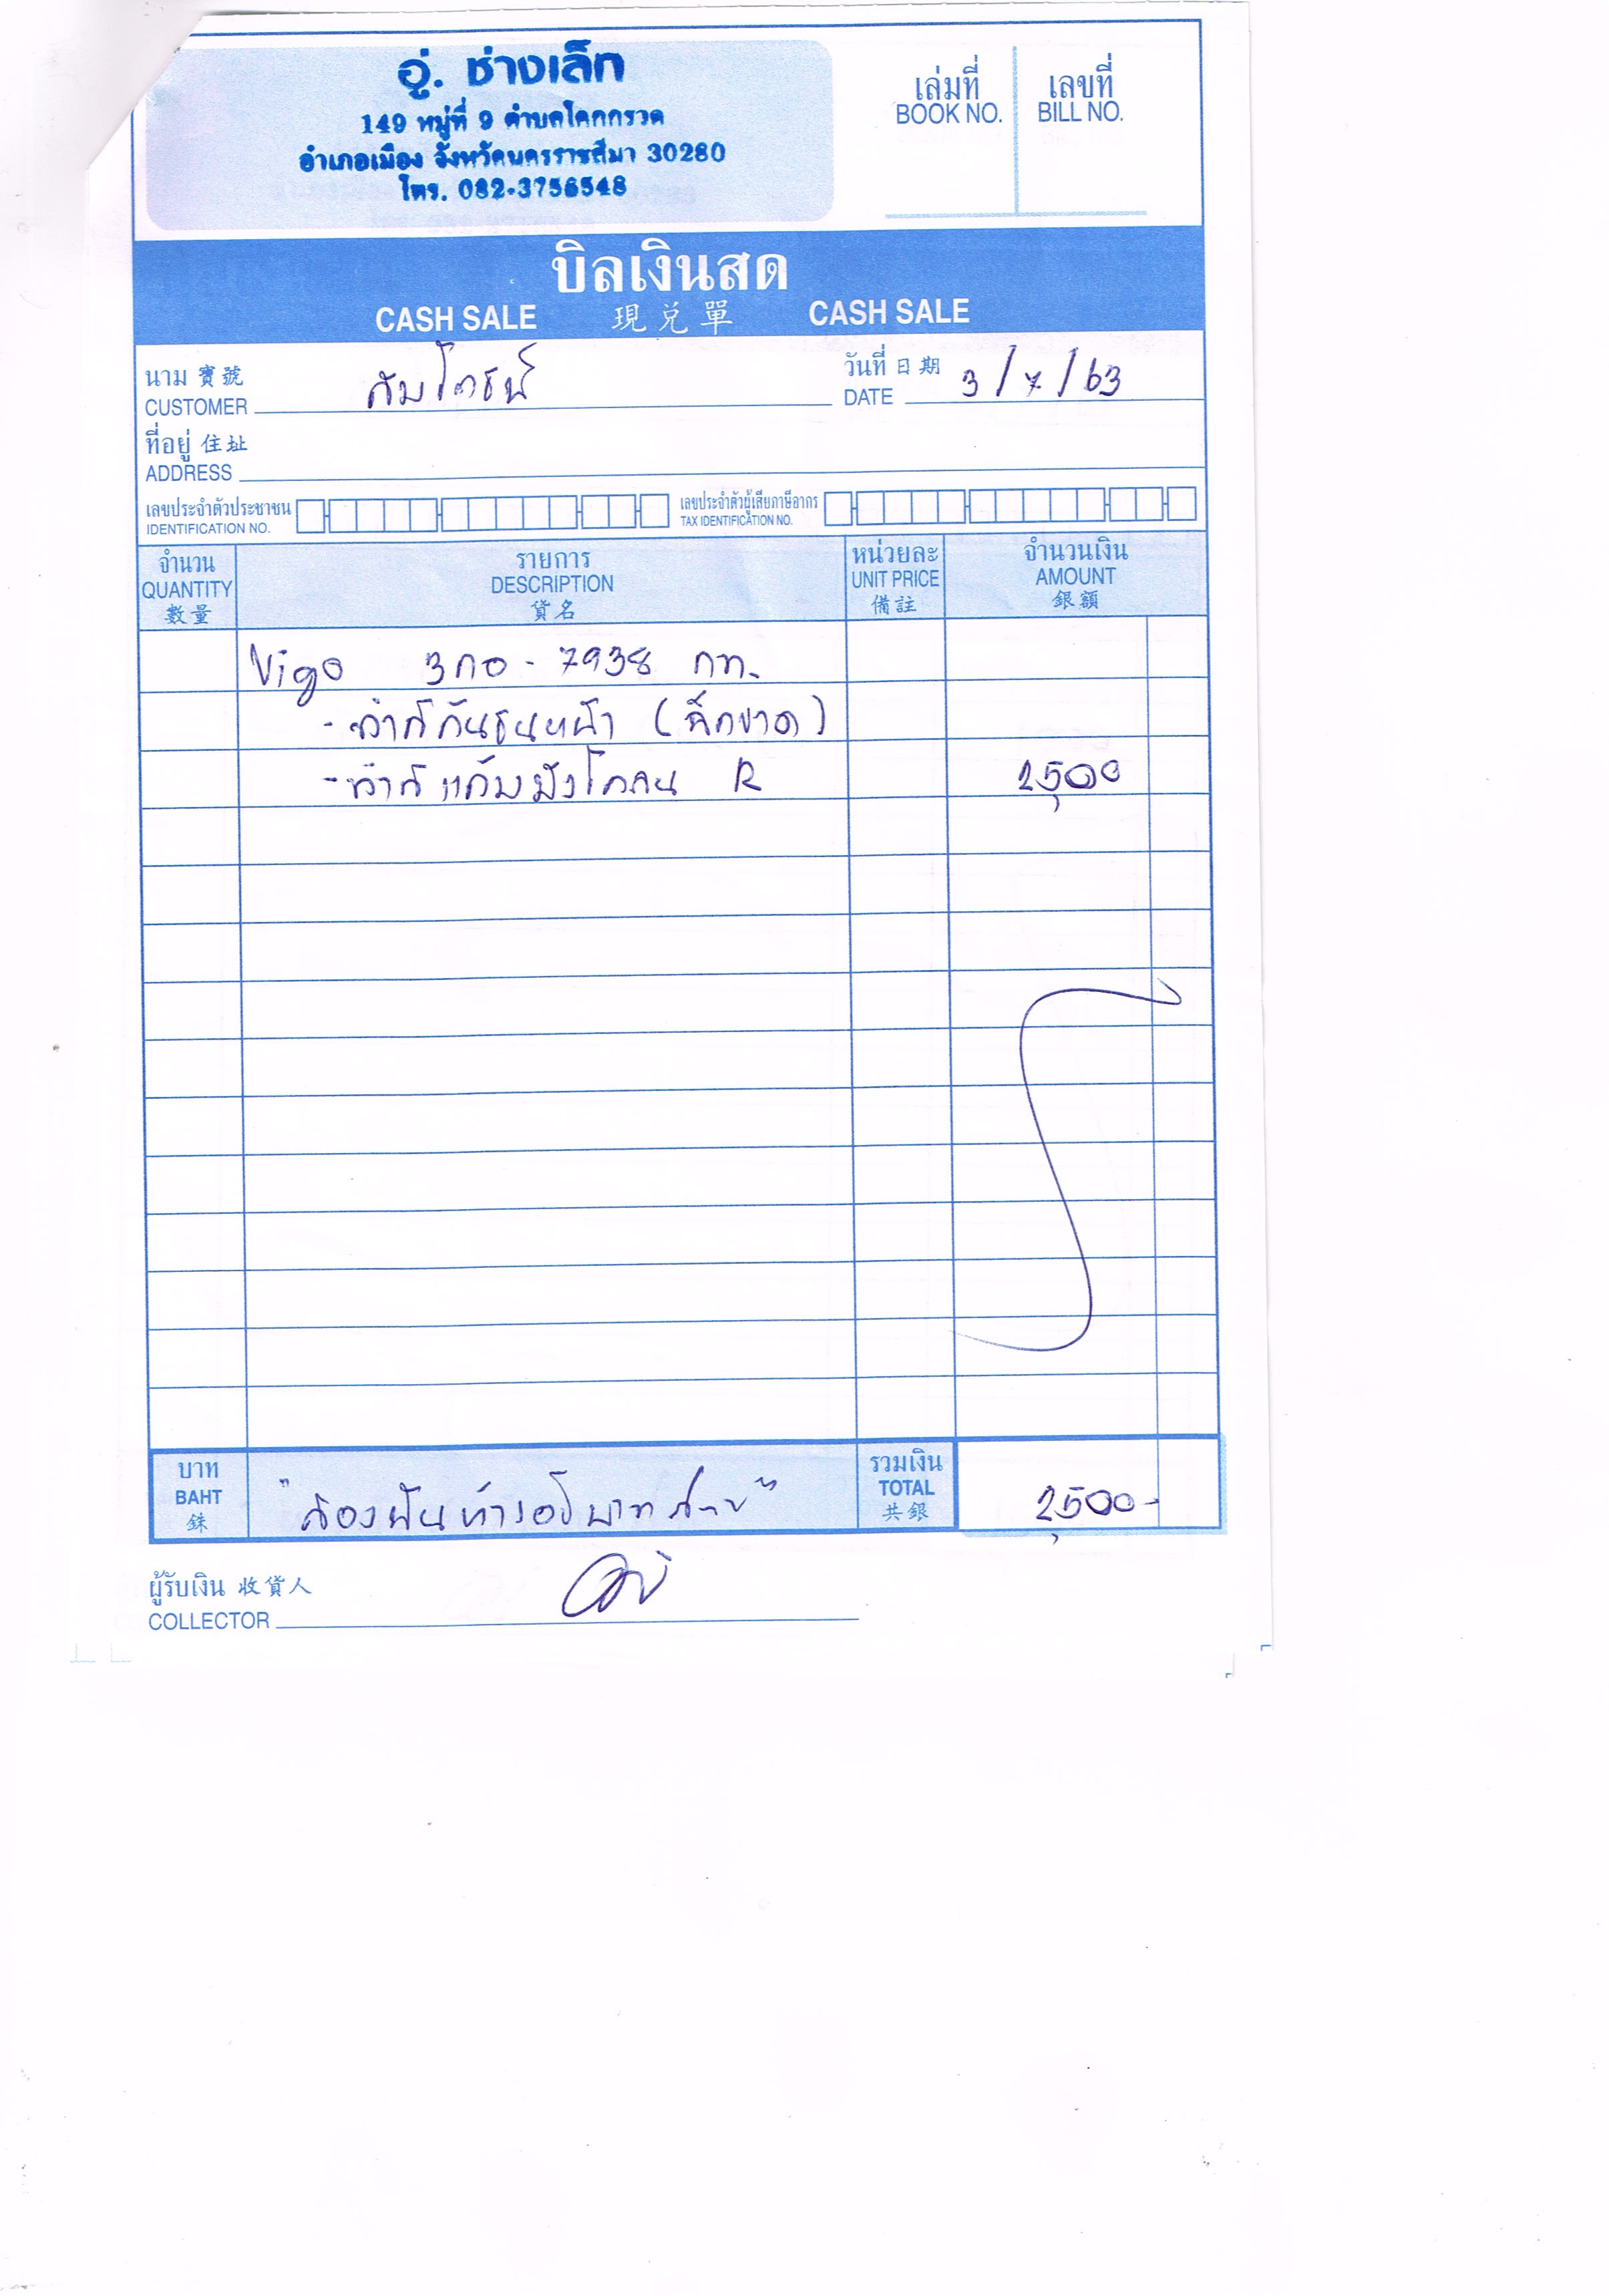 อู่. ช่างเล็ก
149 หมู่ที่ 9 ตำบลโคกกรวด
อำเภอเมือง จังหวัดนครราชสีมา 30280
โทร. 082-3756548
เล่มที่ เลขที่
BOOK NO. BILL NO.
บิลเงินสด
CASH SALE 現兌單 CASH SALE
นาม 寶號 วันที่ 日期
CUSTOMER DATE 3/7/63
ที่อยู่ 住址
ADDRESS
เลขประจำตัวประชาชน เลขประจำตัวผู้เสียภาษีอากร
IDENTIFICATION NO. TAX IDENTIFICATION NO.
จำนวน รายการ หน่วยละ จำนวนเงิน
QUANTITY DESCRIPTION UNIT PRICE AMOUNT
數量 貨名 備註 銀額
Vigo 3กอ-7938 กท.
- ทำสีกันชนหน้า (ฉีกขาด)
- ทำสีแก้มบังโคลน R 2,500
บาท รวมเงิน
BAHT "สองพันห้าร้อยบาทถ้วน" TOTAL 2,500-
銖 共銀
ผู้รับเงิน 收貨人
COLLECTOR